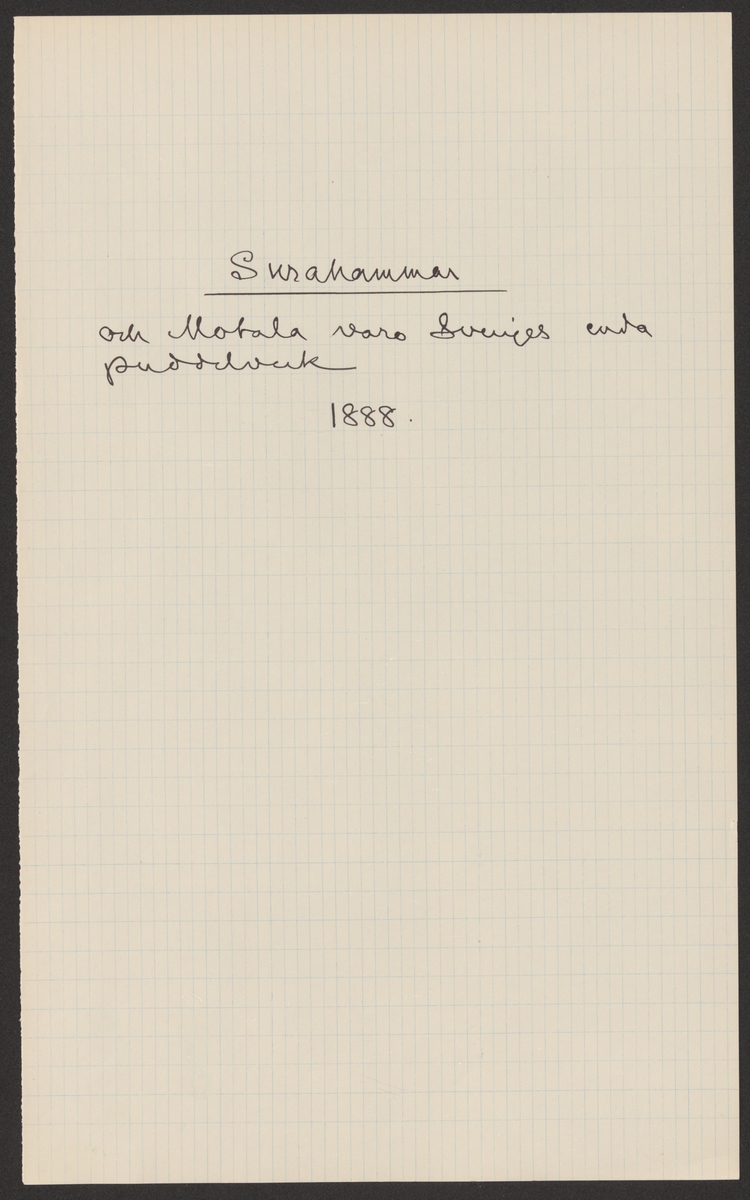 Surahammar
och Motala varo Sveriges enda
puddelverk
1888.